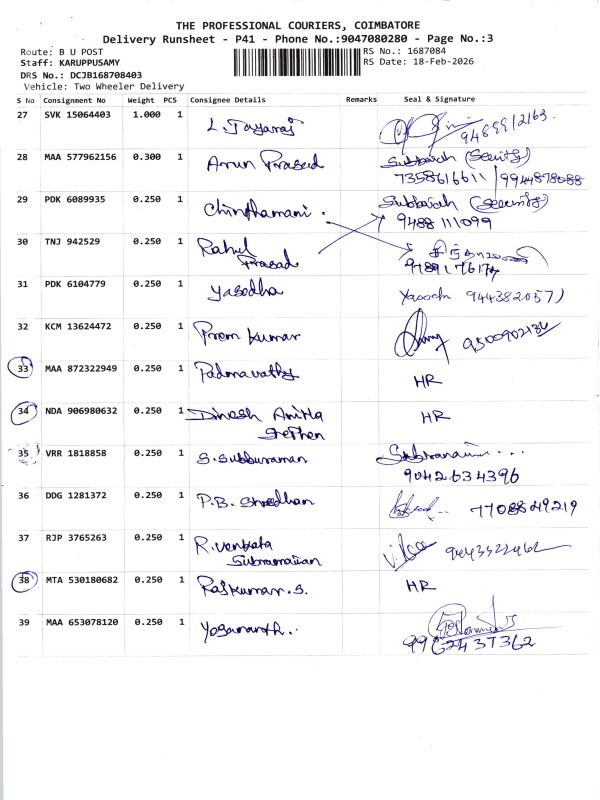 THE PROFESSIONAL COURIERS, COIMBATORE
Delivery Runsheet - P41 - Phone No.:9047080280 - Page No.:3
Route: B U POST
RS No.: 1687084
Staff: KARUPPUSAMY
RS Date: 18-Feb-2026
DRS No.: DCJB168708403
Vehicle: Two Wheeler Delivery
S No Consignment No Weight PCS Consignee Details Remarks Seal & Signature
27 SVK 15064403 1.000 1 L. Jayaraj
28 MAA 577962156 0.300 1 Arun Prasad Subbaiah (Security)
7358616611 / 9944878088
29 PDK 6089935 0.250 1 Chinthamani. Subbaiah (Security)
9488 111099
30 TNJ 942529 0.250 1 Rahul
Prasad
31 PDK 6104779 0.250 1 Yasodha 944382057)
32 KCM 13624472 0.250 1 Prem Kumar 9500902134
33 MAA 872322949 0.250 1 Padmavathy HR
34 NDA 906980632 0.250 1 Dinesh Anitta HR
Stephen
35 VRR 1818858 0.250 1 S. Subburaman
9042634396
36 DDG 1281372 0.250 1 P.B. Shreedhan 7708849219
37 RJP 3765263 0.250 1 R. Venkata
Subramanian
38 MTA 530180682 0.250 1 Rajkumar. S. HR
39 MAA 653078120 0.250 1 Yogananth..
9962437362